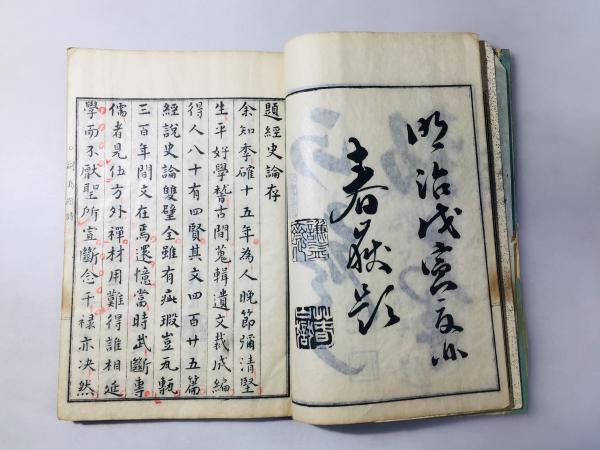 明治戊寅夏小
春嶽題
題經史論存
余知季確十五年為人晚節彌清堅
生平好學嗜古閒蒐輯遺文裁成編
得人八十有四賢其文四百廿五篇
經說史論雙璧全雖有疵瑕豈瓦甎
三百年間文在焉還憶當時武斷專
儒者見伍方外禪材用難得誰相延
學而不厭聖所宣斷念干祿亦决然